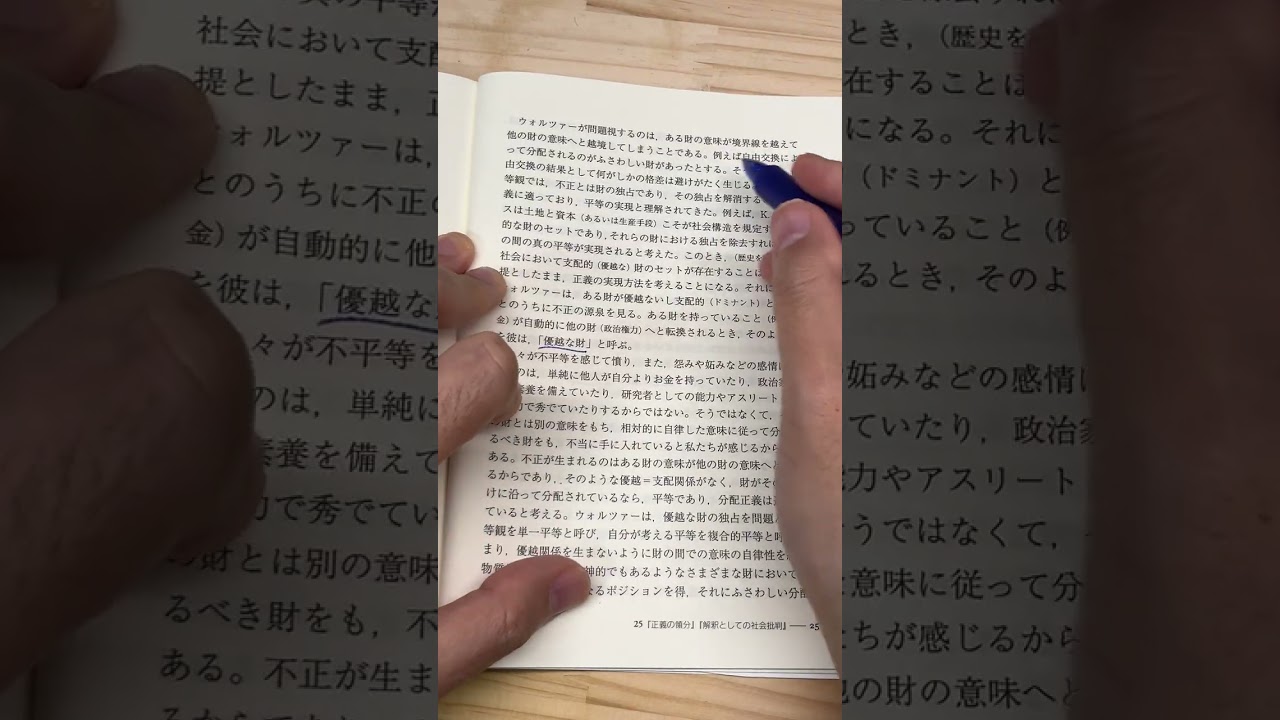 ウォルツァーが問題視するのは，ある財の意味が境界線を越えて
他の財の意味へと越境してしまうことである。例えば自由交換によ
って分配されるのがふさわしい財があったとする。そ
由交換の結果として何がしかの格差は避けがたく生じる
等観では，不正とは財の独占であり，その独占を解消する
義に適っており，平等の実現と理解されてきた。例えば，K.
スは土地と資本（あるいは生産手段）こそが社会構造を規定す
的な財のセットであり，それらの財における独占を除去すれ
の間の真の平等が実現されると考えた。このとき，（歴史を
社会において支配的（優越な）財のセットが存在することは
提としたまま，正義の実現方法を考えることになる。それに
ォルツァーは，ある財が優越ないし支配的（ドミナント）と
とのうちに不正の源泉を見る。ある財を持っていること（例
金）が自動的に他の財（政治権力）へと転換されるとき，そのよ
を彼は，「優越な財」と呼ぶ。
々が不平等を感じて憤り，また，怨みや妬みなどの感情に
のは，単純に他人が自分よりお金を持っていたり，政治家
素養を備えていたり，研究者としての能力やアスリート
力で秀でていたりするからではない。そうではなくて，
財とは別の意味をもち，相対的に自律した意味に従って分
るべき財をも，不当に手に入れていると私たちが感じるから
ある。不正が生まれるのはある財の意味が他の財の意味へと
るからであり，そのような優越＝支配関係がなく，財がその
けに沿って分配されているなら，平等であり，分配正義は
ていると考える。ウォルツァーは，優越な財の独占を問題
等観を単一平等と呼び，自分が考える平等を複合的平等と呼
まり，優越関係を生まないように財の間での意味の自律性を
物質 神的でもあるようなさまざまな財において
なるポジションを得，それにふさわしい分配
25『正義の領分』『解釈としての社会批判』—— 25